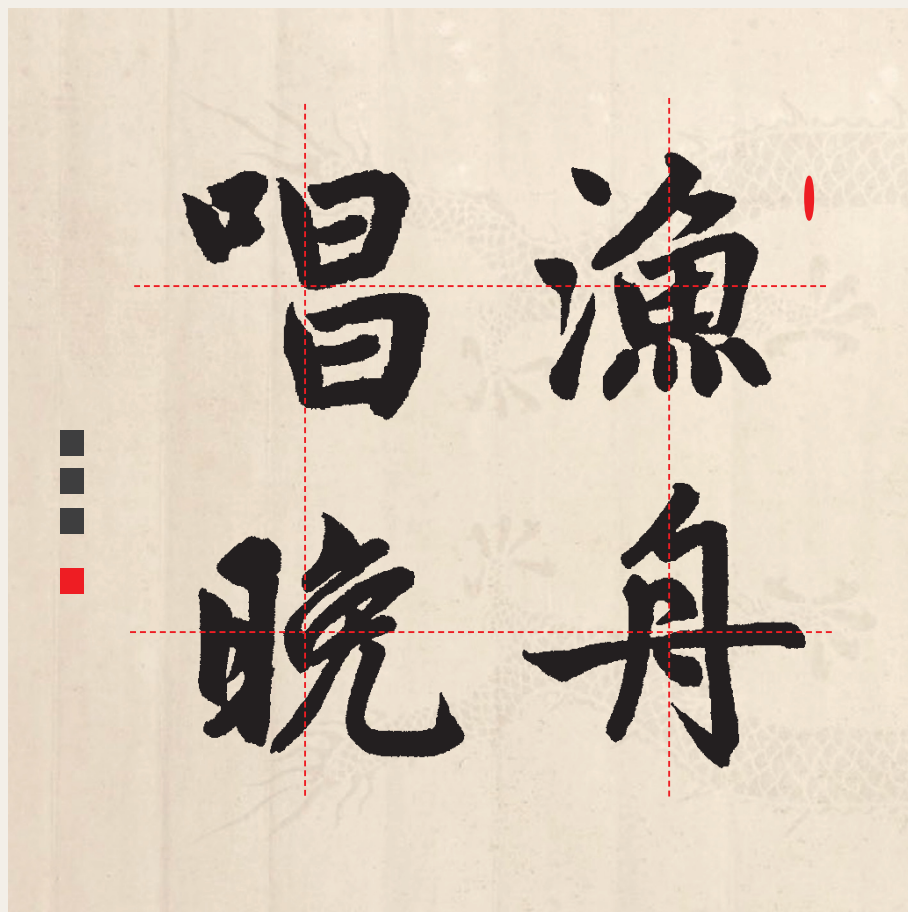 漁舟
唱晚